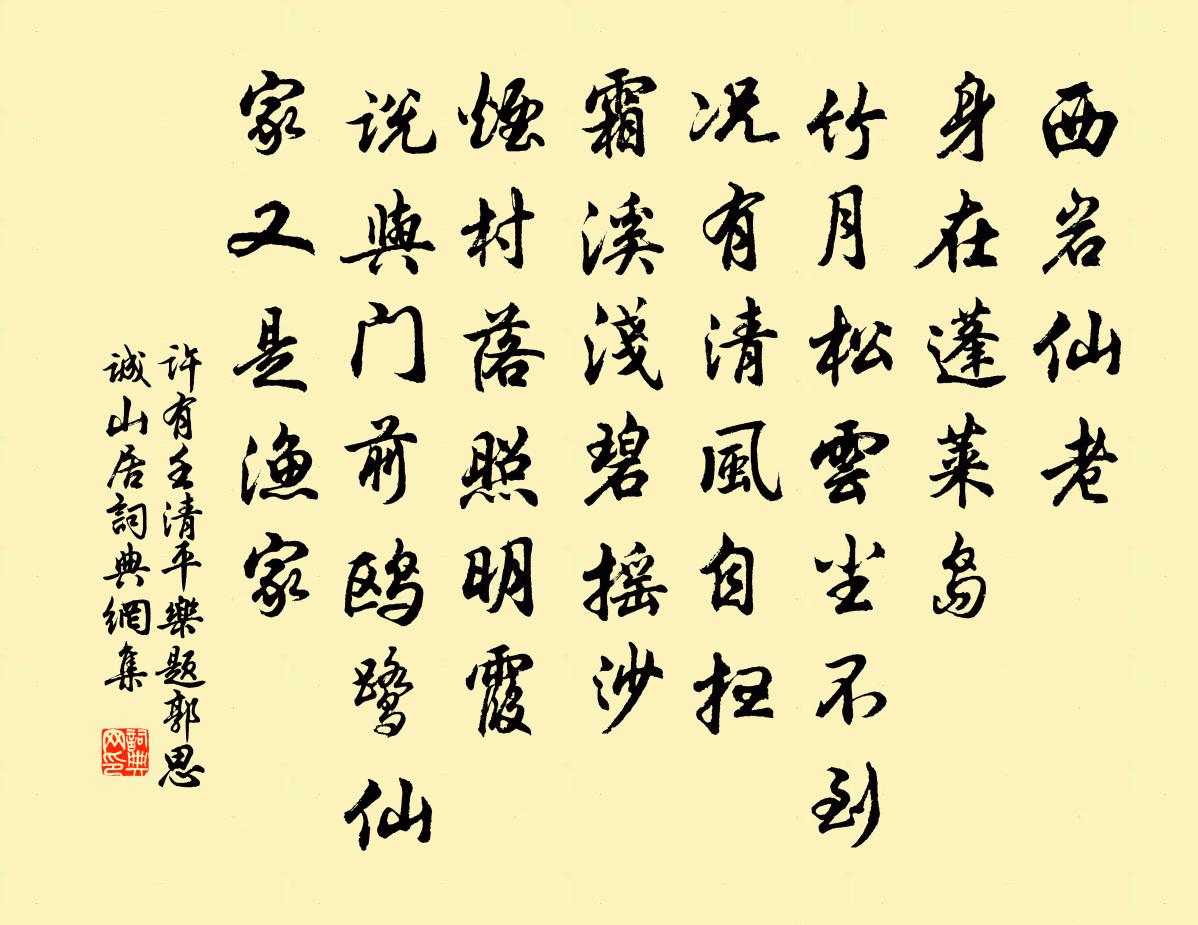 西岩仙老
身在蓬莱岛
竹月松雲尘不到
况有清風自扫
霜溪淺碧摇沙
煙村落照明霞
说與门前鸥鹭仙
家又是漁家
许有壬清平樂题郭思
诚山居詞典網集
詞典
网印